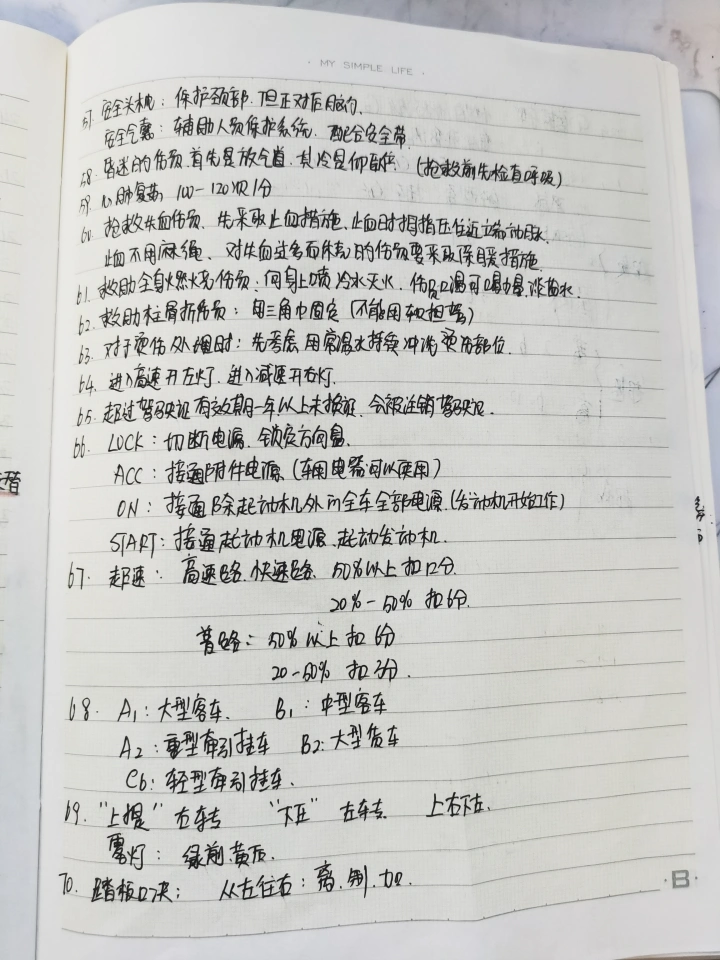 MY SIMPLE LIFE
57. 安全头枕：保护颈部.但正对后脑勺.
安全气囊：辅助人员保护系统. 配合安全带.
58. 昏迷的伤员.首先是放气道.其次是仰卧位.（抢救前先检查呼吸）
59. 心肺复苏：100-120次/分
60. 抢救失血伤员. 先采取止血措施、止血时拇指压住近端动脉.
止血不用麻绳、 对失血过多而休克的伤员要采取保暖措施.
61. 救助全身燃烧伤员：向身上喷冷水灭火. 伤员口渴可喝少量淡盐水.
62. 救助柱骨折伤员：用三角巾固定（不能用软担架）
63. 对于烫伤处理时：先考虑用常温水持续冲洗烫伤部位.
64. 进入高速开左灯.进入减速开右灯.
65. 超过驾驶证有效期一年以上未换证. 会被注销驾驶证.
66. LOCK：切断电源.锁定方向盘.
ACC：接通附件电源.（车用电器可以使用）
ON：接通除起动机外的全车全部电源.（发动机开始工作）
START：接通起动机电源.起动发动机.
67. 超速： 高速路.快速路. 50%以上扣12分.
20%-50% 扣6分.
普路：50%以上扣6分
20-50% 扣3分.
68. A1：大型客车. B1：中型客车
A2：重型牵引挂车 B2：大型货车
C6：轻型牵引挂车.
69. “上提”右转 “下压”左转 上右下左.
雾灯：绿前.黄后.
70. 踏板口决： 从左往右：离.制.加.
B